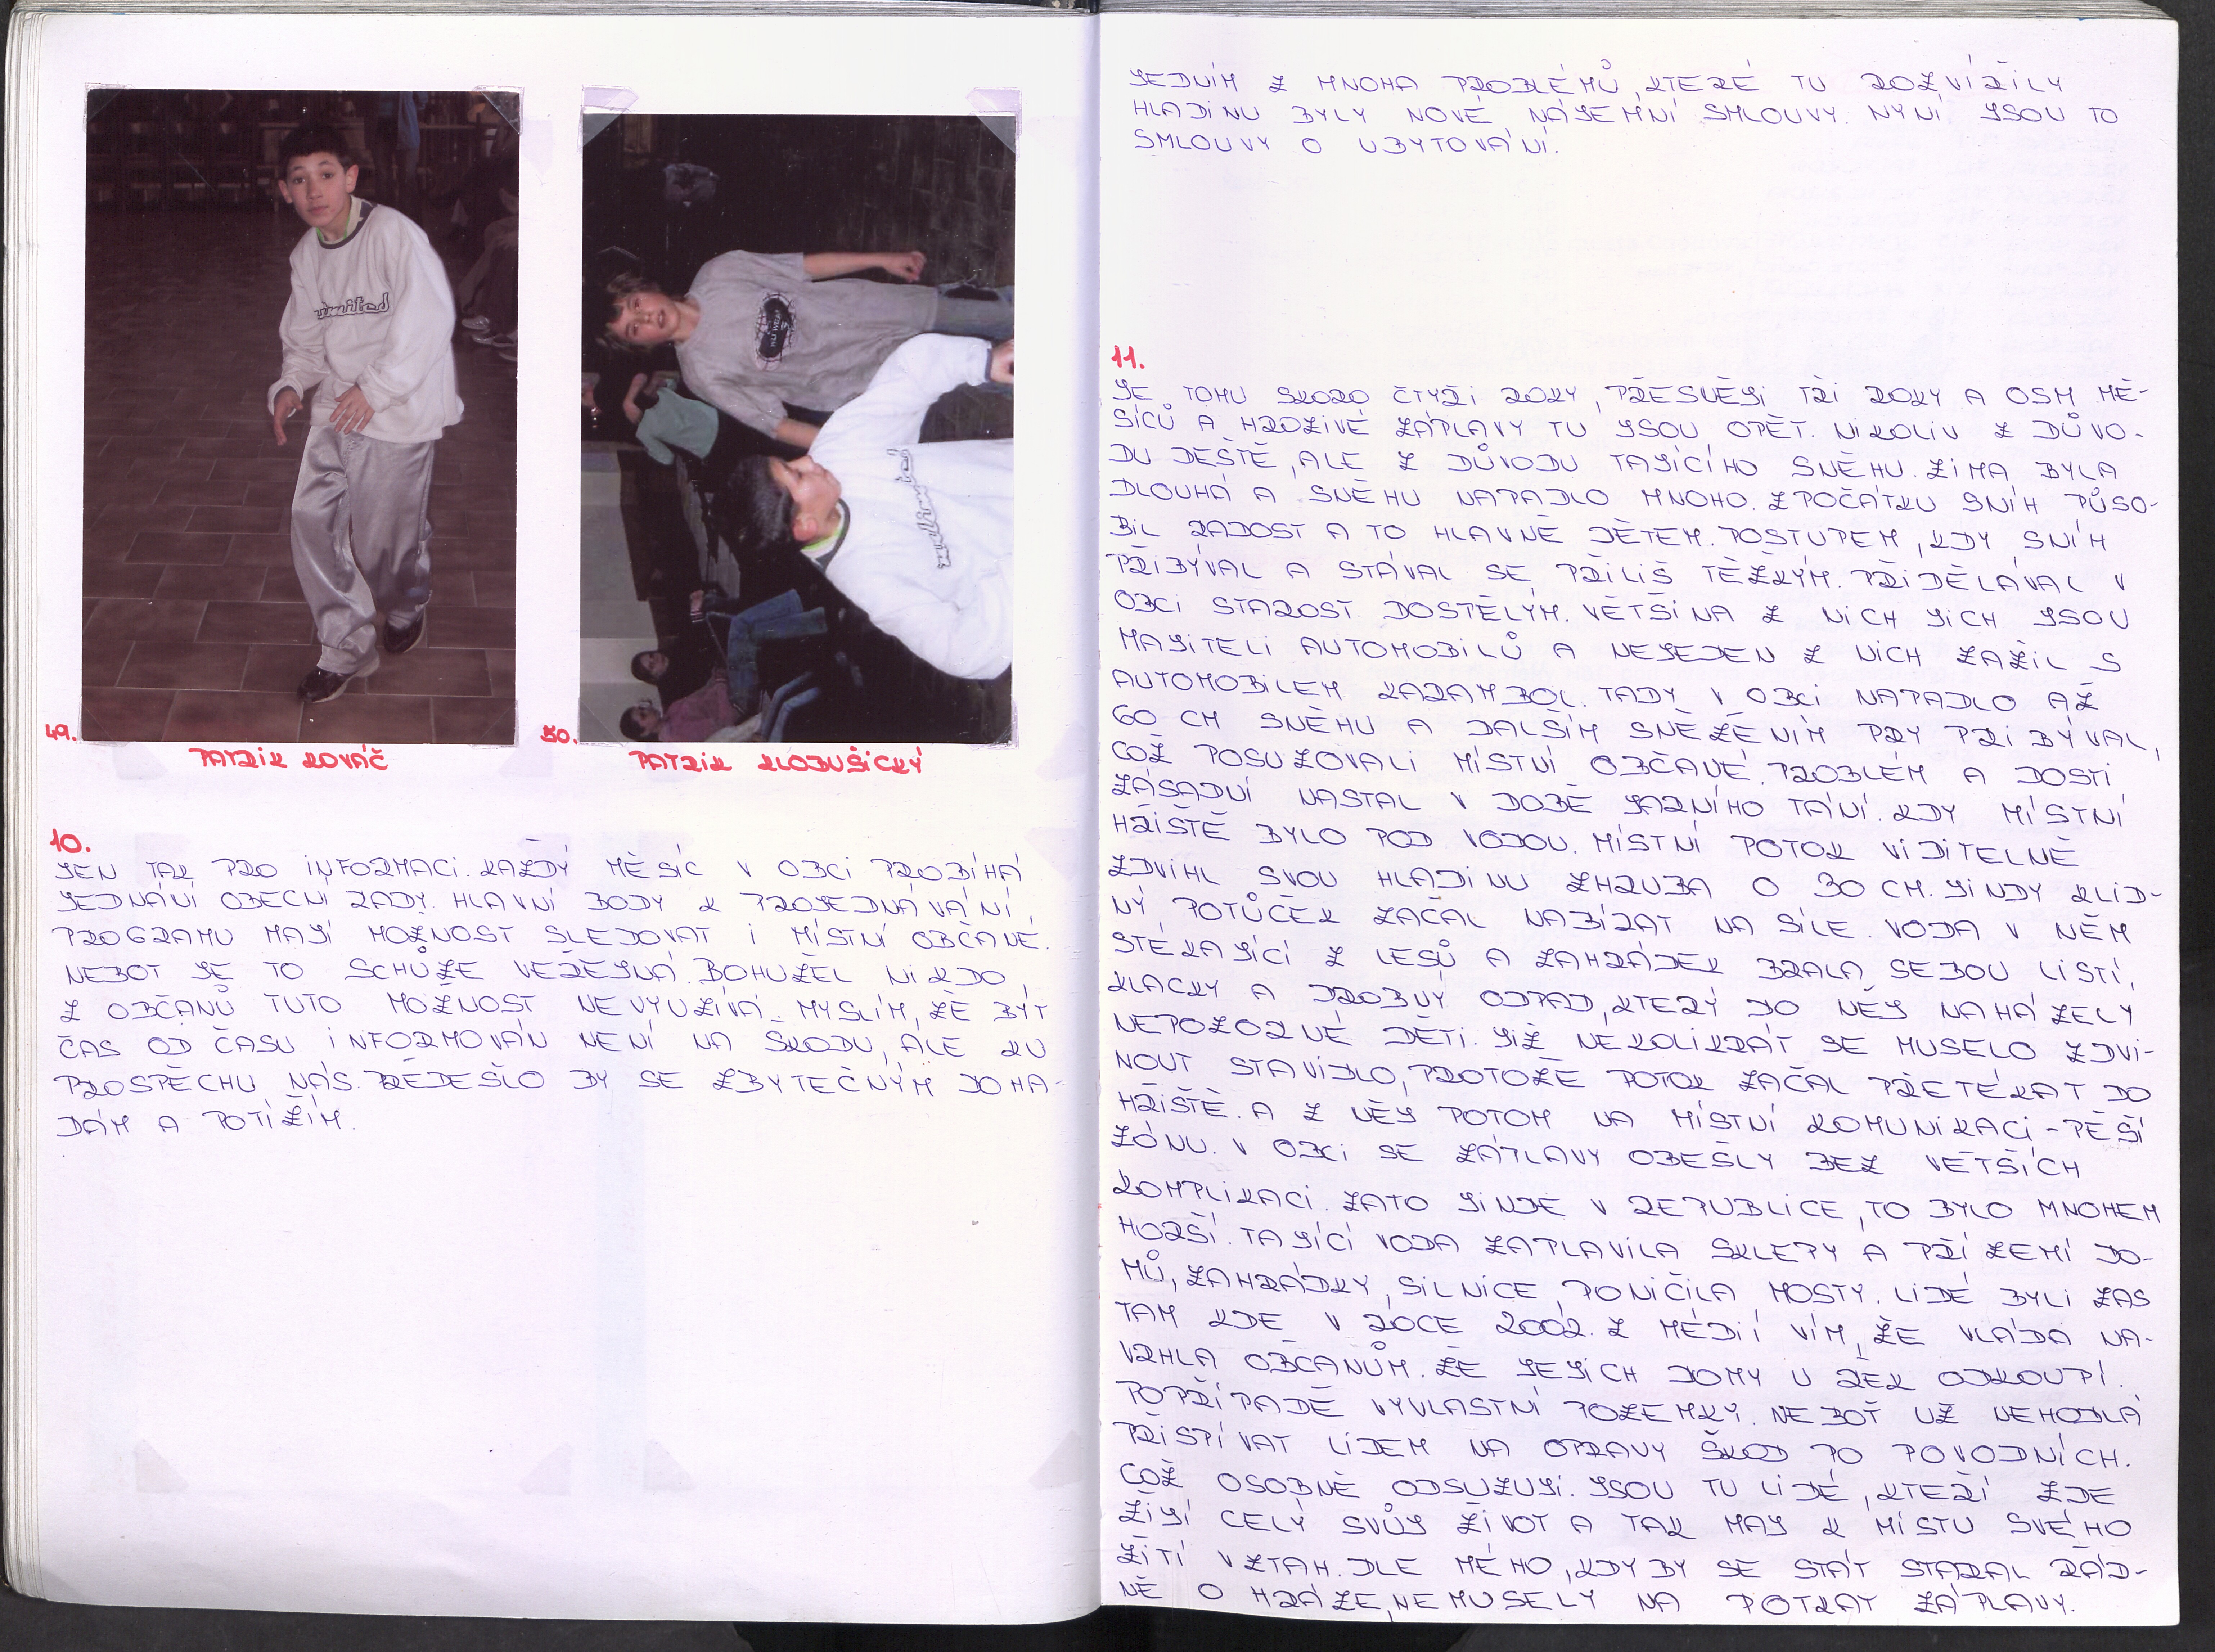 unlimited
49.
PATRIK KOVÁČ
50.
PATRIK KLOBUŠICKÝ
10.
JEN TAK PRO INFORMACI. KAŽDÝ MĚSÍC V OBCI PROBÍHÁ
JEDNÁNÍ OBECNÍ RADY. HLAVNÍ BODY K PROJEDNÁVÁNÍ,
PROGRAMU MAJÍ MOŽNOST SLEDOVAT I MÍSTNÍ OBČANÉ.
NEBOT JE TO SCHŮZE VEŘEJNÁ. BOHUŽEL NIKDO,
Z OBČANŮ TUTO MOŽNOST NEVYUŽÍVÁ. MYSLÍM, ŽE BÝT
ČAS OD ČASU INFORMOVÁN NENÍ NA ŠKODU, ALE KU
PROSPĚCHU NÁS. PŘEDEŠLO BY SE ZBYTEČNÝM DOHA-
DÁM A POTÍŽÍM.
JEDNÍM Z MNOHA PROBLÉMŮ, KTERÉ TU ROZVÍŘILY
HLADINU BYLY NOVÉ NÁJEMNÍ SMLOUVY. NYNÍ JSOU TO
SMLOUVY O UBYTOVÁNÍ.
11.
JE TOMU SKORO ČTYŘI ROKY, PŘESNĚJI TŘI ROKY A OSM MĚ-
SÍCŮ A HROZIVÉ ZÁPLAVY TU JSOU OPĚT. NIKOLIV Z DŮVO-
DU DEŠTĚ, ALE Z DŮVODU TAJÍCÍHO SNĚHU. ZIMA BYLA
DLOUHÁ A SNĚHU NAPADLO MNOHO. ZPOČÁTKU SNÍH PŮSO-
BIL RADOST A TO HLAVNĚ DĚTEM. POSTUPEM, KDY SNÍH
PŘIBÝVAL A STÁVAL SE PŘÍLIŠ TĚŽKÝM. PŘIDĚLÁVAL V
OBCI STAROST DOSTĚLÝM. VĚTŠINA Z NICH JICH JSOU
MAJITELI AUTOMOBILŮ A NEJEDEN Z NICH ZAŽIL S
AUTOMOBILEM KARAMBOL. TADY V OBCI NAPADLO AŽ
60 CM SNĚHU A DALŠÍM SNĚŽENÍM PRY PRIBÝVAL,
COŽ POSUZOVALI MÍSTNÍ OBČANÉ. PROBLÉM A DOSTI
ZÁSADNÍ NASTAL V DOBĚ JARNÍHO TÁNÍ. KDY MÍSTNÍ
HŘIŠTĚ BYLO POD VODOU. MÍSTNÍ POTOK VIDITELNĚ
ZDVIHL SVOU HLADINU ZHRUBA O 30 CM. JINDY KLID-
NÝ POTŮČEK ZAČAL NABÍRAT NA SÍLE. VODA V NĚM
STÉKAJÍCÍ Z LESŮ A ZAHRÁDEK BRALA SEBOU LISTÍ,
KLACKY A DROBNÝ ODPAD, KTERÝ DO NĚJ NAHÁZELY
NEPOZORNÉ DĚTI. JIŽ NĚKOLIKRÁT SE MUSELO ZDVI-
NOUT STAVIDLO, PROTOŽE POTOK ZAČAL PŘETÉKAT DO
HŘIŠTĚ. A Z NĚJ POTOM NA MÍSTNÍ KOMUNIKACI - PĚŠÍ
ZÓNU. V OBCI SE ZÁPLAVY OBEŠLY BEZ VĚTŠÍCH
KOMPLIKACÍ. ZATO JINDE V REPUBLICE, TO BYLO MNOHEM
HORŠÍ. TAJÍCÍ VODA ZAPLAVILA SKLEPY A PŘÍZEMÍ DO-
MŮ, ZAHRÁDKY, SILNICE, PONIČILA MOSTY. LIDÉ BYLI ZAS
TAM KDE V ROCE 2002. Z MÉDIÍ VÍM, ŽE VLÁDA NA-
VRHLA OBČANŮM. ŽE JEJICH DOMY U ŘEK ODKOUPÍ.
POPŘÍPADĚ VYVLASTNÍ POZEMKY. NEBOŤ UŽ NEHODLÁ
PŘISPÍVAT LIDEM NA OPRAVY ŠKOD PO POVODNÍCH.
COŽ OSOBNĚ ODSUZUJI. JSOU TU LIDÉ, KTEŘÍ ZDE
ŽIJÍ CELÝ SVŮJ ŽIVOT A TAK MAJ K MÍSTU SVÉHO
ŽITÍ VZTAH. DLE MÉHO, KDYBY SE STÁT STARAL ŘÁD-
NĚ O HRÁZE, NEMUSELY NA POTKAT ZÁPLAVY.